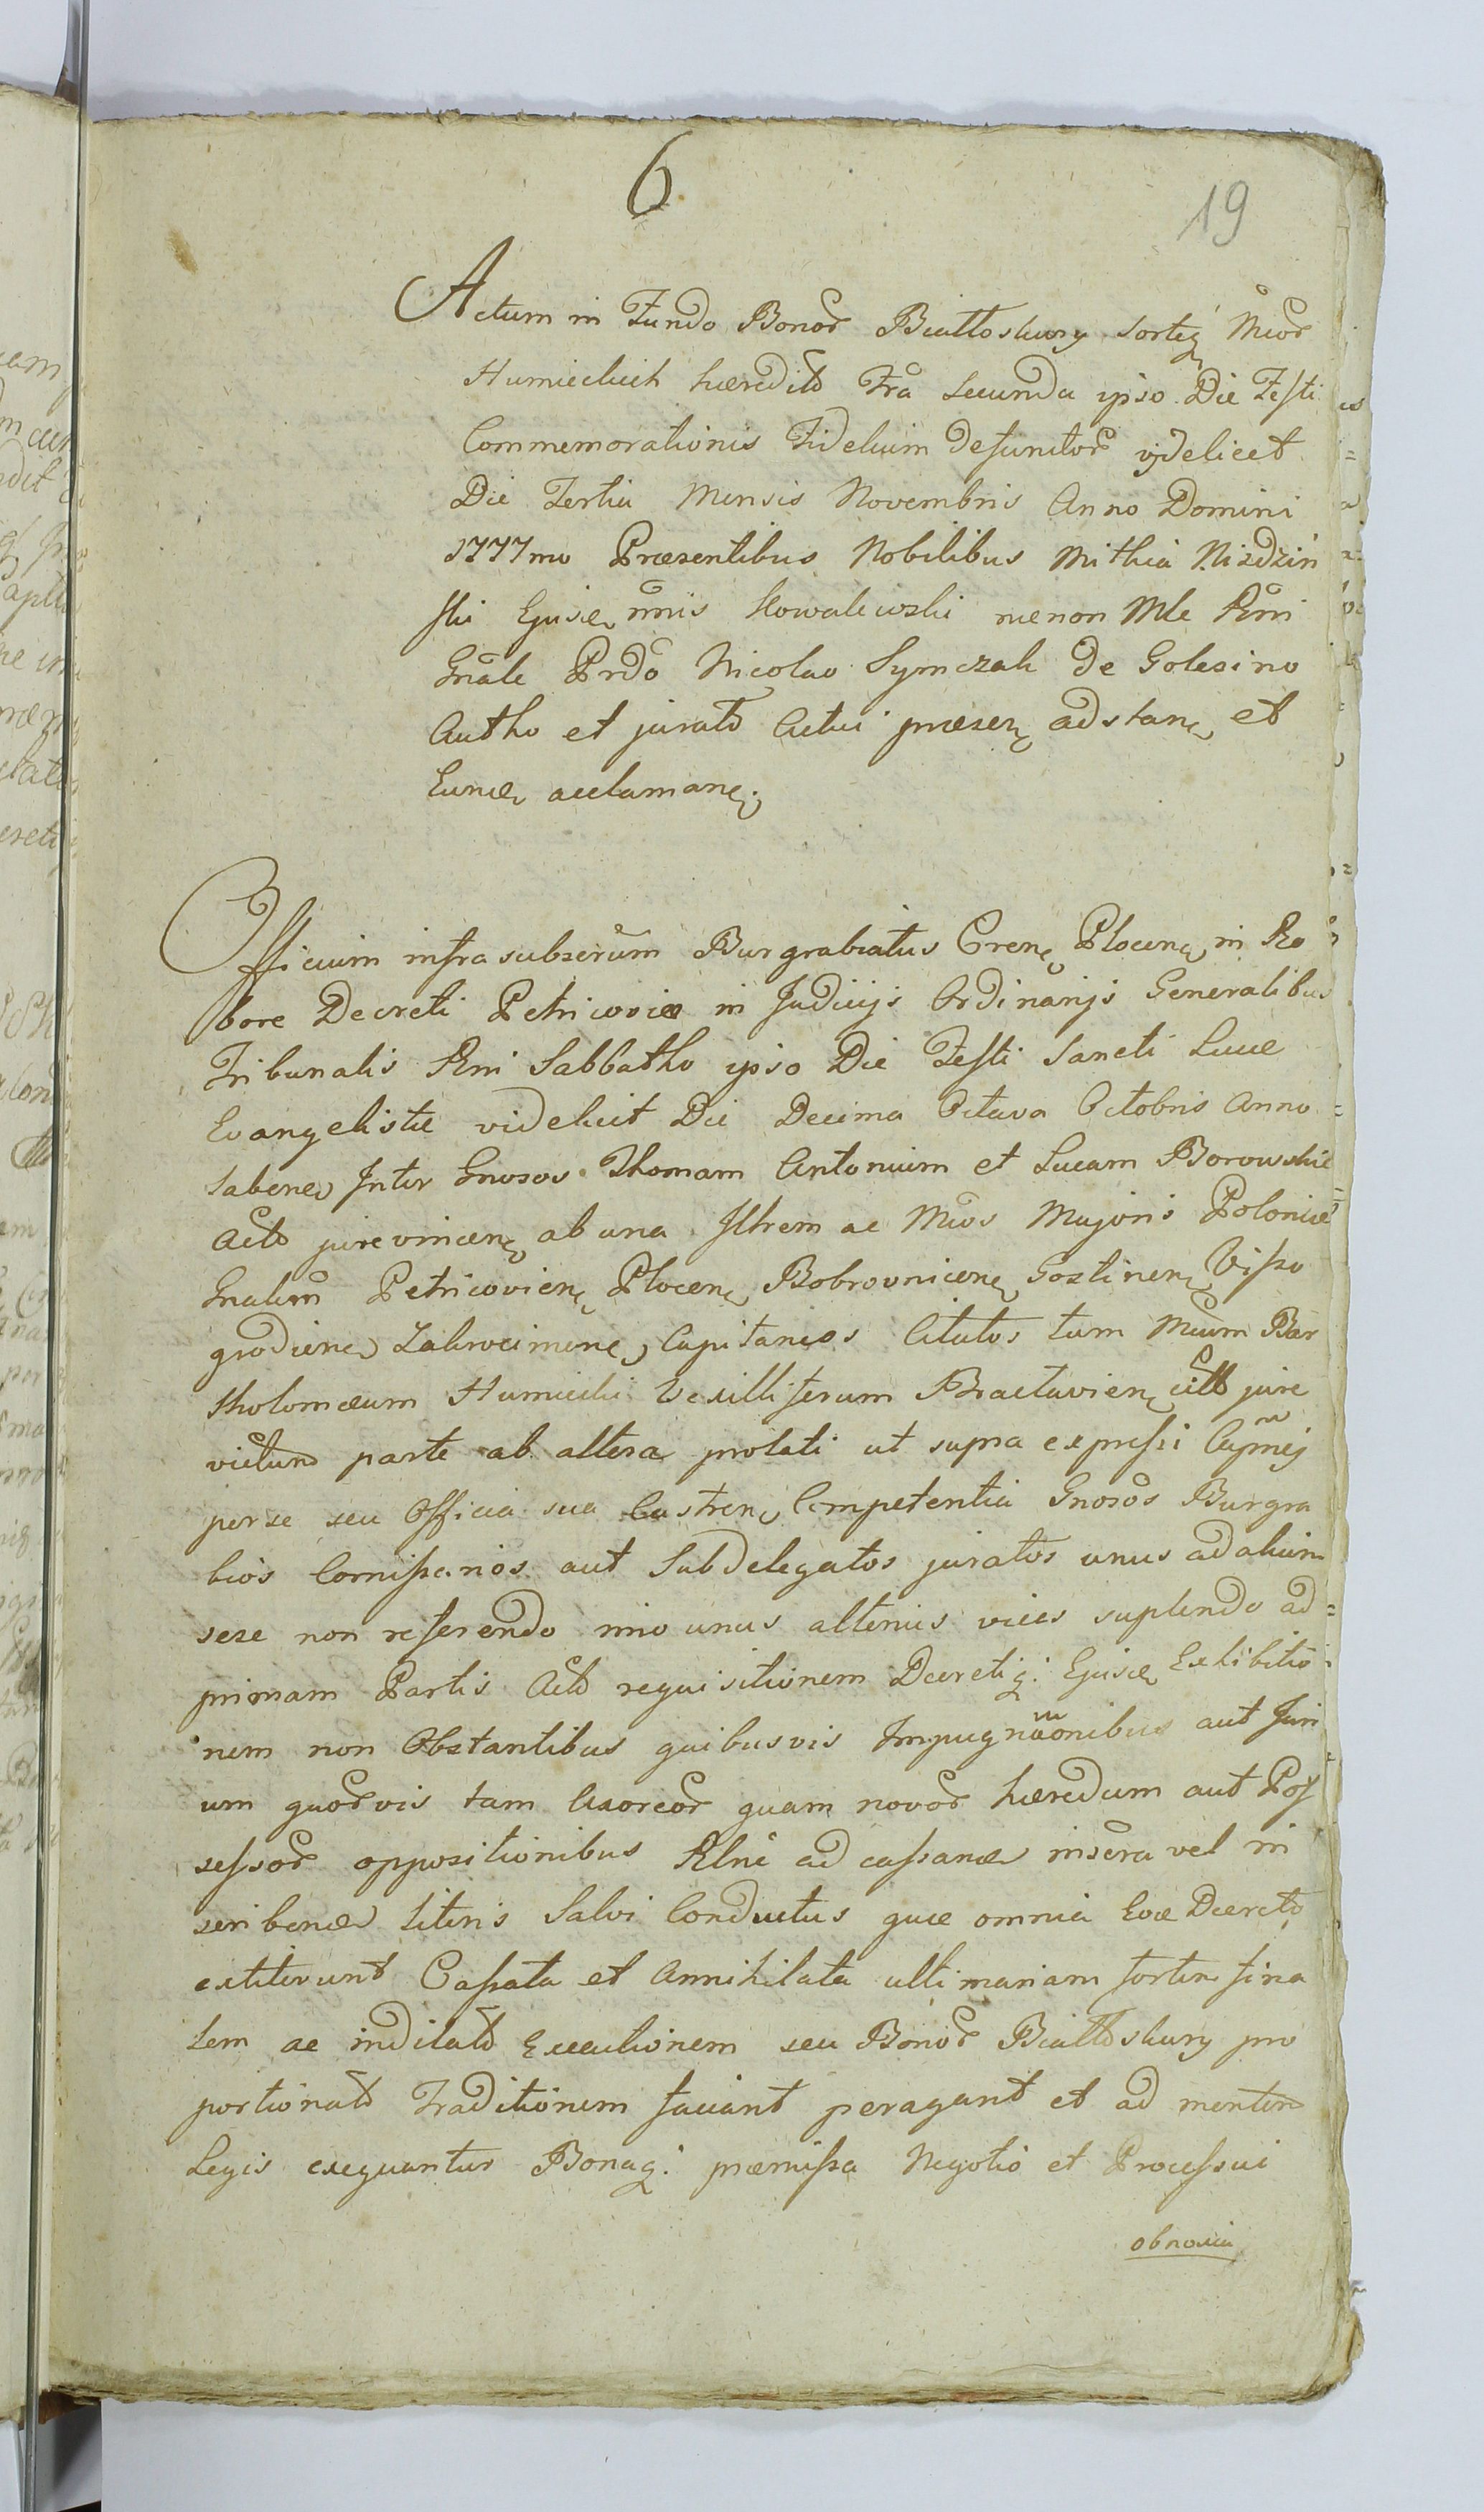 6
19
Actum in Fundo Bonor Białłoskury Sortisq Mcor
Humieckich hæredit Fra Secunda ipso Die Festi
Commemorationis Fidelium Defunctor videlicet
Die Tertia Mensis Novembris Anno Domini
1777mo Præsentibus Nobilibus Mathia Nisdziń
ski Ejusce mnis Kowalewski necnon Mle Rni
Gnāle Prdō Nicolao Symczak de Golesino
Autho et jurato Actui præsen adstan et
Eunde acclamane.
Officium infra subscrūm Burgrabiatus Cren Plocen in Ro
bore Decreti Petricoviæ in Judicijs Ordinarijs Generalibus
Tribunalis Rni Sabbatho ipso Die Festi Sancti Lucæ
Evangelistæ videlicet Die Decima Octava Octobris Anno
laben Inter Gnosos Thomam Antonium et Lucam Borowskie
Act jurevincen ab una Illrem ac Mcos Majoris Poloniæ
Gnalem Petricovien Plocen Bobrovnicen Gostinen Visso
grodien Zakrocimen Capitaneos Citatos tum Mcum Bar
tholomæum Humiecki Vexilliferum Bractavien citt jure
victum parte ab altera prolati ut supra expressi Capnej
per se seu Officia sua Castren Competentia Gnosos Burgra
bios Comissarios aut Subdelegatos juratos unus ad alium
sese non referendo imo unus alterius vices suplendo ad
primam Partis Act requisitionem Decretiq: Ejusce Exhibitio
nem non Obstantibus quibusvis Impugnaonibus aut Juri
um quorvis tam Uxoreor quam novor hæredum aut Pos
sessor oppositionibus Rlnē ad cassand inscra vel in
scribend Literis Salvi Conductus quæ omnia Eod Decreto
extiterunt Cassata et Annihilata ultimariam fortem fina
lem ac indilat Executionem seu Bonor Białłoskury pro
portionat Traditionem faciant peragant et ad mentem
Legis exequantur Bonaq: præmissa Negotio et Processui
obnoxia